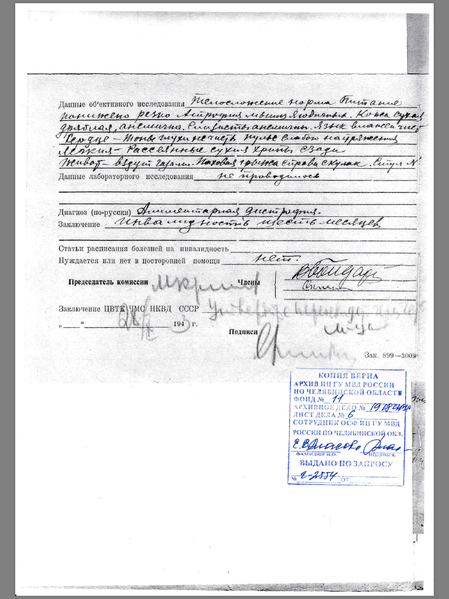 Данные объективного исследования Телосложение норма Питание
понижено резко Атрофия мышц ягодичных. Кожа сухая
дряблая, анемична. Слизисты анемичны. Язык влажен чист
Сердце – Тоны глухи нечисты пульс слабого напряжения
Лёгкия – Рассеянные сухия хрипы сзади
Живот – вздут газами. Паховая грыжа справа с кулак. Стул N
Данные лабораторного исследования не проводилось
Диагноз (по-русски) Алиментарная дистрофия.
Заключение инвалидность шесть месяцев
Статьи расписания болезней на инвалидность
Нуждается или нет в посторонней помощи нет.
Председатель комиссии Члены
Заключение ЦВТК ЧМС НКВД СССР
„ “ 194 3 г.
Подписи
Зак. 899—3009
КОПИЯ ВЕРНА
АРХИВ ИЦ ГУ МВД РОССИИ
ПО ЧЕЛЯБИНСКОЙ ОБЛАСТИ
ФОНД № 11
АРХИВНОЕ ДЕЛО №
ЛИСТ ДЕЛА № 6
СОТРУДНИК ОСФ ИЦ ГУ МВД
РОССИИ ПО ЧЕЛЯБИНСКОЙ ОБЛ.
ФАМИЛИЯ И.О. ПОДПИСЬ
ВЫДАНО ПО ЗАПРОСУ
№ ОТ